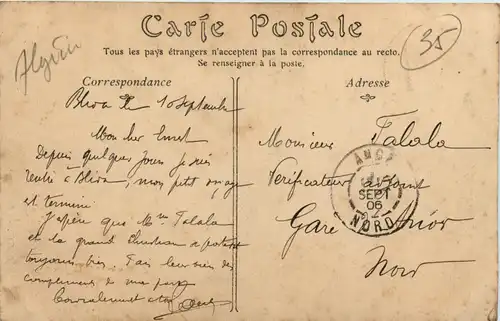 Carte Postale
Tous les pays étrangers n'acceptent pas la correspondance au recto.
Se renseigner à la poste.
35
Algérie
Correspondance
Blida le 10 Septembre
Mon cher Ernest
Depuis quelques jours je suis
rentré à Blida, mon petit voyage
est terminé.
J'espère que Mme Talala
et la grand Christian se portent
toujours bien. Fais leur bien des
compliments de ma part
Cordialement à toi
Adresse
Monsieur Talala
Vérificateur adjoint
Gare
Nord
SEPT
06
NORD